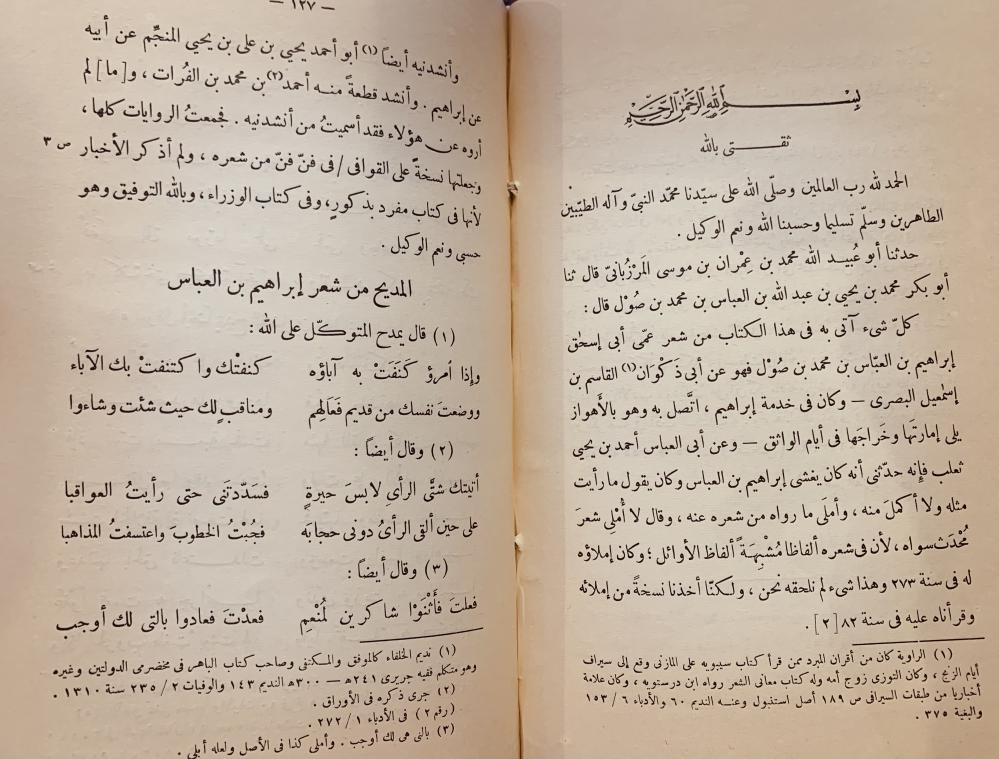 بسم الله الرحمن الرحيم
ثقتى بالله
الحمد لله رب العالمين وصلّى الله على سيّدنا محمّد النبىّ وآله الطيّبين
الطاهرين وسلّم تسليما وحسبنا الله ونعم الوكيل .
حدثنا أبو عُبيد الله محمد بن عِمْران بن موسى المَرْزُبانىّ قال ثنا
أبو بكر محمد بن يحيى بن عبد الله بن العباس بن محمد بن صُوْل قال :
كلّ شىء آتى به فى هذا الكتاب من شعر عمّى أبى إسحٰق
إبراهيم بن العبّاس بن محمد بن صُوْل فهو عن أبى ذَكْوَان (١) القاسم بن
إسمٰعيل البصرى — وكان فى خدمة إبراهيم ، اتَّصل به وهو بالأهواز
يلى إمارتَها وخَراجَها فى أيام الواثق — وعن أبى العباس أحمد بن يحيى
ثعلب فإنه حدّثنى أنه كان يغشى إبراهيم بن العباس وكان يقول ما رأيت
مثله ولا أكملَ منه ، وأملَى ما رواه من شعره عنه ، وقال لا أُمْلِى شعرَ
مُحْدَث سواه ، لأن فى شعره ألفاظا مُشْبِهَةً ألفاظ الأوائل ؛ وكان إملاؤه
له فى سنة ٢٧٣ وهذا شىء لم نلحقه نحن ، ولكنّا أخذنا نسخةً من إملائه
وقرأناه عليه فى سنة ٨٢ [ ٢ ] .
(١) الراوية كان من أقران المبرد ممن قرأ كتاب سيبويه على المازنى وقع إلى سيراف
أيام الزنج ، وكان التوزى زوج أمه وله كتاب معانى الشعر رواه ابن درستويه ، وكان علامة
أخباريا من طبقات السيرافى ص ١٨٩ أصل استنبول وعنه النديم ٦٠ والأدباء ٦ / ١٥٣
والبغية ٣٧٥ .
— ١٢٧ —
وأنشدنيه أيضاً (١) أبو أحمد يحيى بن على بن يحيى المنجّم عن أبيه
عن إبراهيم . وأنشد قطعةً منه أحمد (٢) بن محمد بن الفُرات ، و [ ما ] لم
أروه عن هؤلاء فقد أسميتُ من أنشدنيه . فجمعتُ الروايات كلها ،
وجعلتها نسخةً على القوافى / فى فنّ فنّ من شعره ، ولم أذكر الأخبار ص ٣
لأنها فى كتاب مفرد بذكورٍ ، وفى كتاب الوزراء ، وبالله التوفيق وهو
حسبى ونعم الوكيل .
المديح من شعر إبراهيم بن العباس
(١) قال يمدح المتوكّل على الله :
وإذا امرؤ كَنَفَتْ به آباؤه كنفتْك واكتنفتْ بك الآباء
ووضعتَ نفسك من قديم فَعَالِهِم ومناقبٍ لك حيث شئت وشاءوا
(٢) وقال أيضاً :
أتيتك شتَّى الرأىِ لابسَ حيرةٍ فسَدّدتَنى حتى رأيتُ العواقبا
على حين ألقى الرأىُ دونى حجابَه فجُبْتُ الخطوبَ واعتسفتُ المذاهبا
(٣) وقال أيضاً :
فعلتَ فأَثْنَوْا شاكرين لمُنْعِمٍ فعدْتَ فعادوا بالتى لك أوجب
(١) نديم الخلفاء كالموفق والمكتفى وصاحب كتاب الباهر فى مخضرمى الدولتين وغيره
وهو متكلم فقيه جريرى ٢٤١ه — ٣٠٠ه النديم ١٤٣ والوفيات ٢ / ٢٣٥ سنة ١٣١٠ .
(٢) جرى ذكره فى الأوراق .
(رقم ٢) فى الأدباء ١ / ٢٧٢ .
(٣) بالتى هى لك أوجب . وأملى كذا فى الأصل ولعله أبلى .